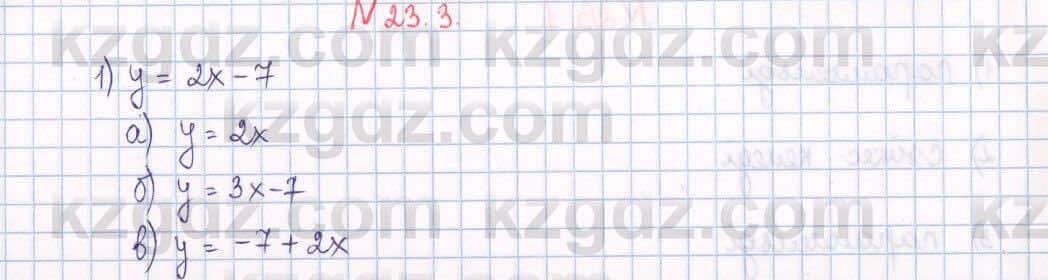 N 23.3.
1) y = 2x - 7
а) y = 2x
б) y = 3x - 7
в) y = -7 + 2x
kzgdz.com kzgdz.com kz
kzgdz.com
kzgdz.com kzgdz.com kz